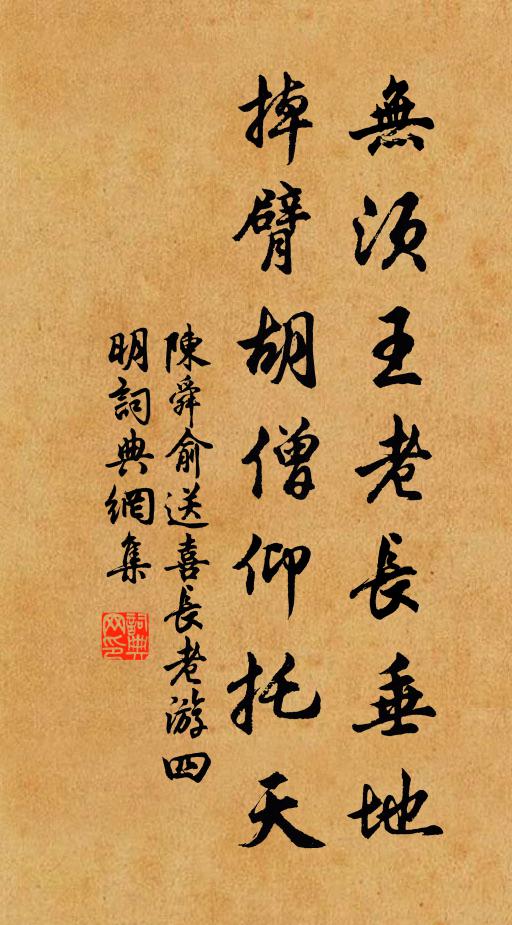 無須王老長垂地
掉臂胡僧仰托天
陳舜俞送喜長老游四
明詞典網集
詞典
网印